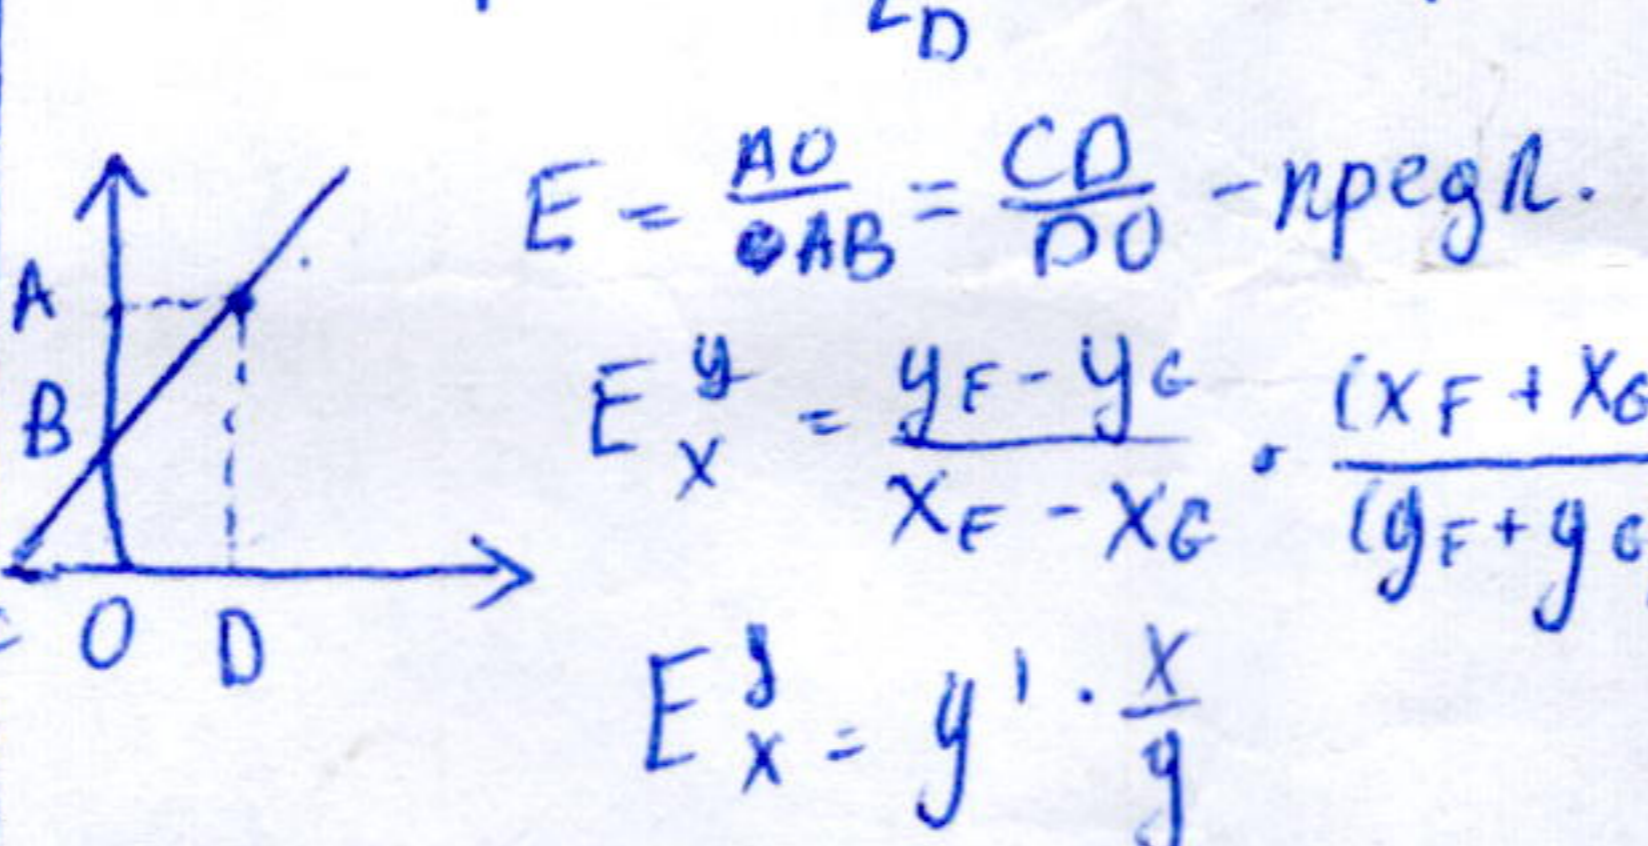 D
E = AO/AB = CD/DO - предл.
A
E^y_x = (y_F - y_G)/(x_F - x_G) · (x_F + x_G/(y_F + y_G
B
O D
E^y_x = y' · x/y